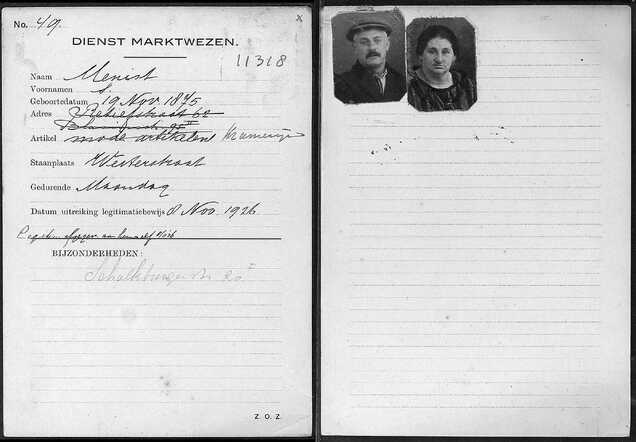 No. 49.
DIENST MARKTWEZEN.
11318
Naam Menist
Voornamen S.
Geboortedatum 19 Nov 1875
Adres Retiefstraat 62
Artikel mode artikelen Kramerijen
Staanplaats Westerstraat
Gedurende Maandag
Datum uitreiking legitimatiebewijs 8 Nov. 1926
BIJZONDERHEDEN:
Schalkburgerstr 20 I
Z. O. Z.